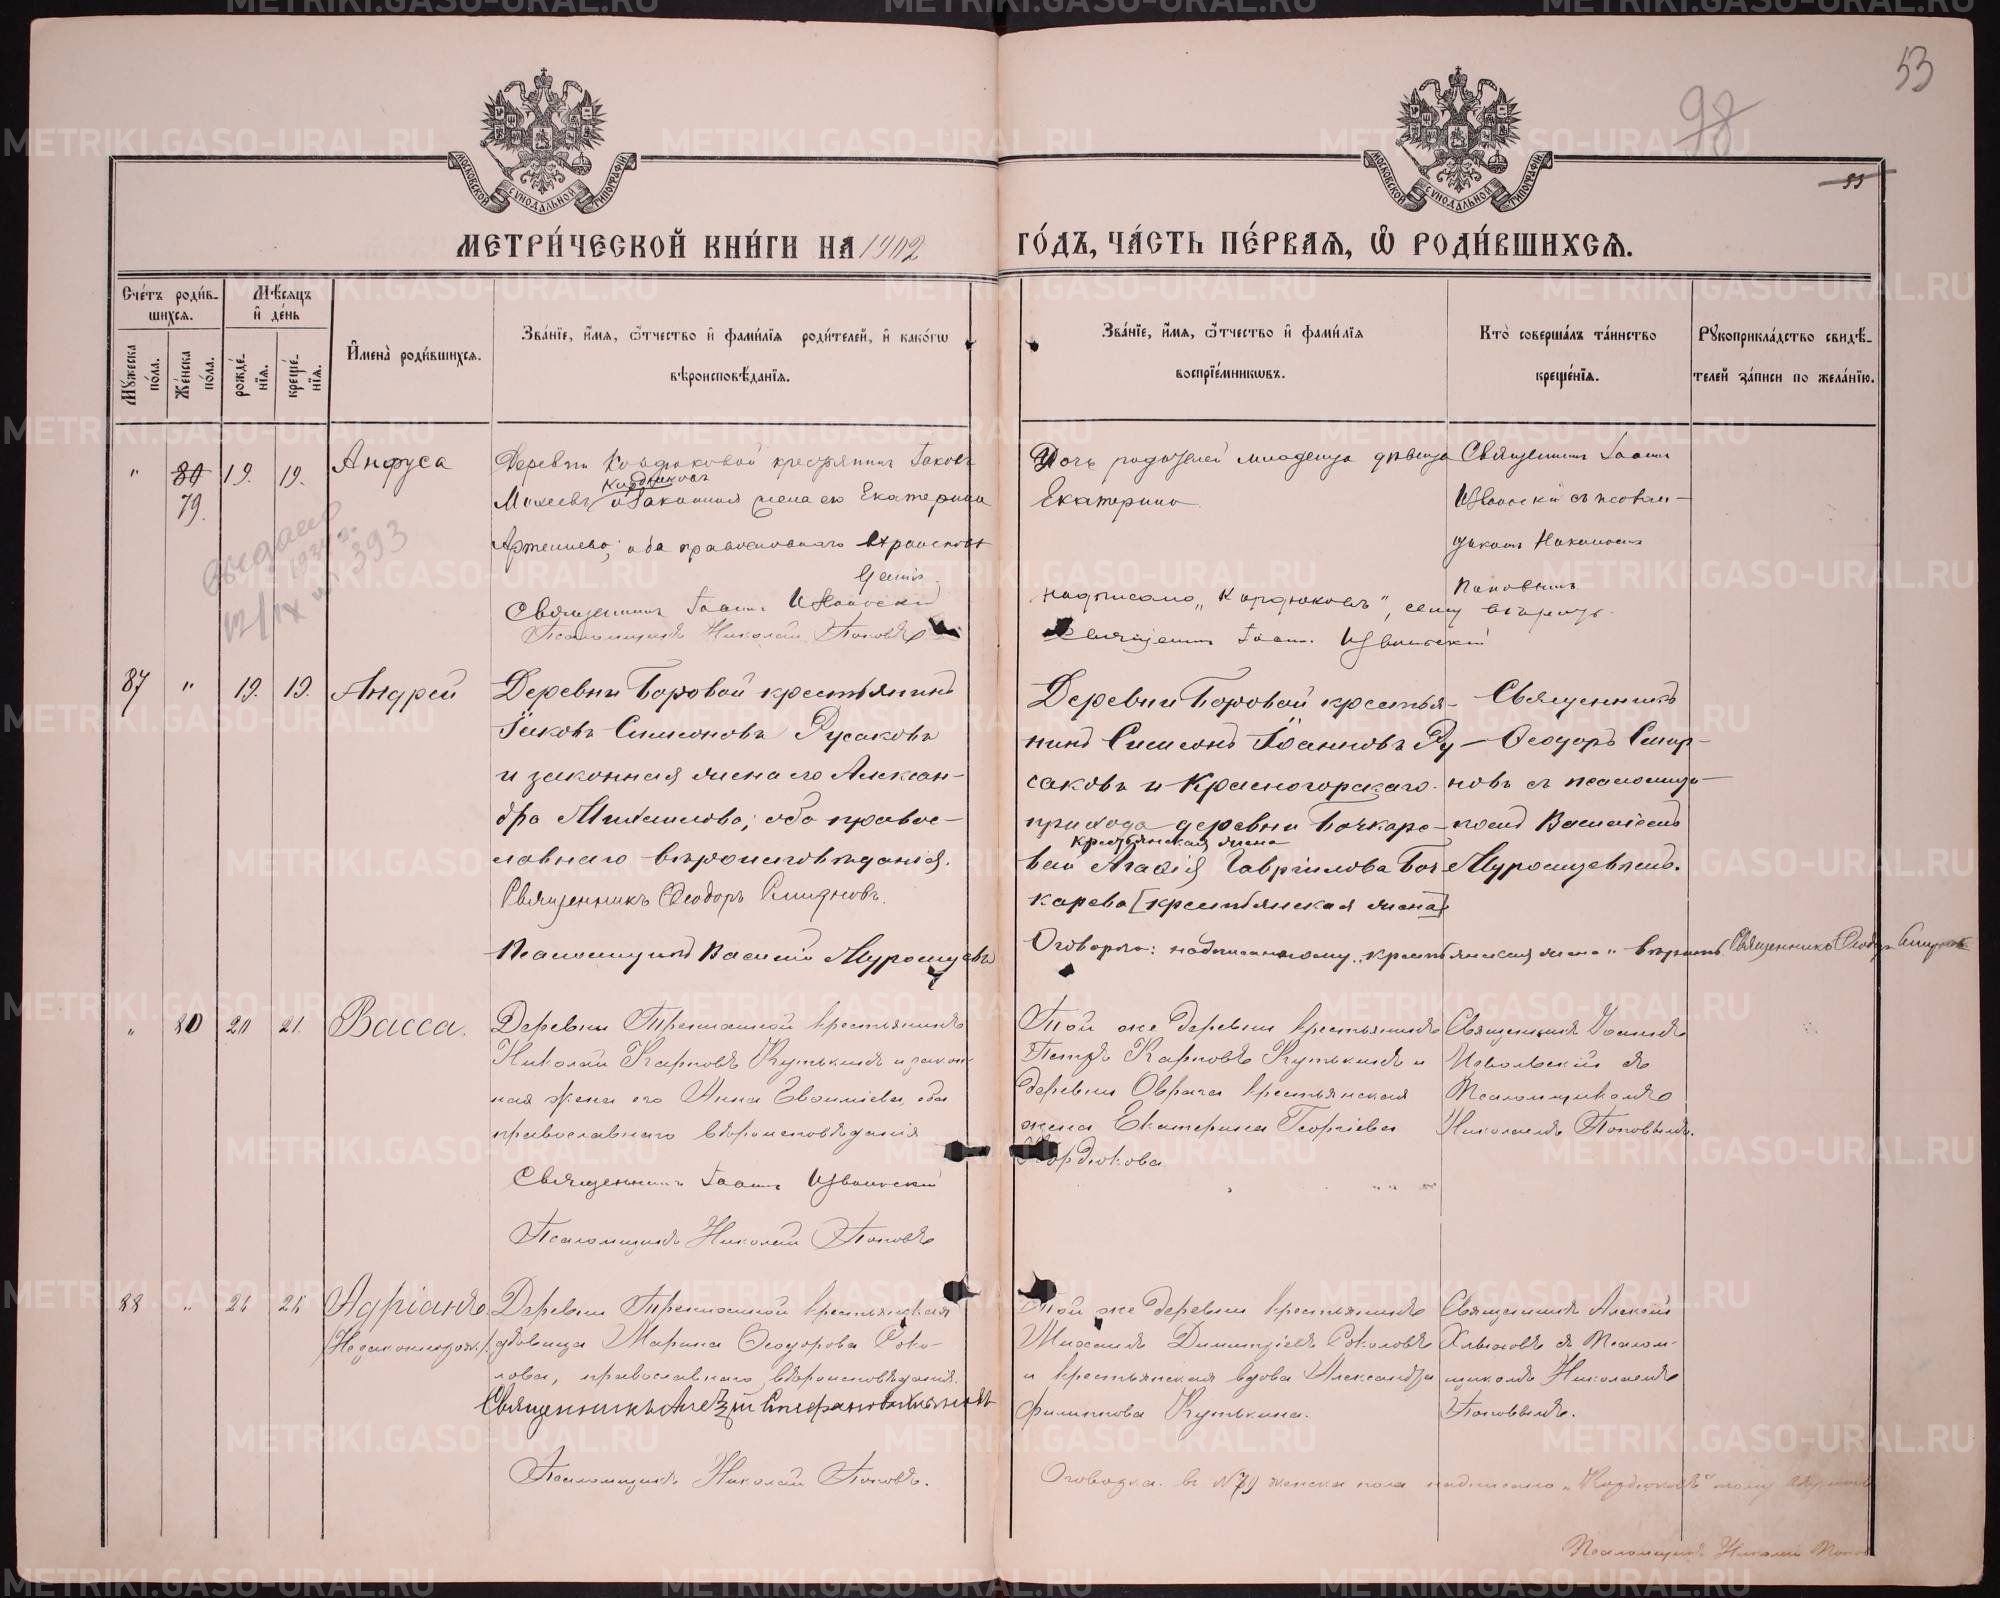 53
98
55
МОСКОВСКОЙ СѴНОДАЛЬНОЙ ТИПОГРАФІИ
МОСКОВСКОЙ СѴНОДАЛЬНОЙ ТИПОГРАФІИ
МЕТРИ́ЧЕСКОЙ КНИ́ГИ НА 1902 ГО́ДЪ, ЧА́СТЬ ПЕ́РВАЯ, Ѡ РОДИ́ВШИХСЯ.
Сче́тъ роди́в-
шихся.
Мѣ́сяцъ
и де́нь
Мꙋ́жеска по́ла.
Же́нска по́ла.
рожде́-
нїя.
креще́-
нїя.
Имена̀ роди́вшихся.
Зва́нїе, и́мя, ѻ҆́тчество и фами́лїя роди́телей, и како́гѡ
вѣроисповѣ́данїя.
Зва́нїе, и́мя, ѻ҆́тчество и фами́лїя
воспрїе́мникѡвъ.
Кто̀ соверша́лъ та́инство
креще́нїя.
Рꙋкоприкла́дство свидѣ́-
телей за́писи по жела́нїю.
" 80 19. 19. Анфуса
79.
Деревни Кордюковой крестьянинъ Іаковъ
Кордюковъ
Моисеевъ и законная жена его Екатерина
Артемиева; оба православнаго вѣроисповѣ
данія
Священникъ Іоаннъ Извольскій
Псаломщикъ Николай Поповъ
Дочь родителей младенца дѣвица
Екатерина
надписано „Кордюковъ", сему вѣрить.
Священникъ Іоаннъ Извольскій
Священникъ Іоаннъ
Извольскій съ псалом-
щикомъ Николаемъ
Поповымъ
12/IX 393
87 " 19. 19. Андрей
Деревни Боровой крестьянинъ
Іаковъ Симеоновъ Русаковъ
и законная жена его Алексан-
дра Михаилова; оба право-
славнаго вѣроисповѣданія.
Священникъ Ѳеодоръ Смирновъ.
Псаломщикъ Василій
Деревни Боровой крестья-
нинъ Симеонъ Іоанновъ Ру-
саковъ и Красногорскаго
прихода деревни Бочкаре-
крестьянская жена
вой Агафія Гавріилова Боч-
карева [крестьянская жена]
Оговорка: надписанному „крестьянская жена" вѣрить Священникъ Ѳеодоръ Смирновъ
Священникъ
Ѳеодоръ Смир-
новъ съ псаломщи-
комъ Василіемъ
" 80 20 21. Васса.
Николай Карповъ Кутькинъ и закон-
ная жена его Анна Евфиміева, оба
православнаго вѣроисповѣданія
Священникъ Іоаннъ Извольскій
Псаломщикъ Николай Поповъ
Той же деревни крестьянинъ
Петръ Карповъ Кутькинъ и
деревни Оврача крестьянская
жена Екатерина Георгіева
Кордюкова
Священникъ Іоаннъ
Извольскій съ
Псаломщикомъ
Николаемъ Поповымъ.
88 " Адріанъ
/Незаконнорож./
вдовица Марина Ѳеодорова Соко-
лова, православнаго вѣроисповѣданія.
Священникъ Алексій Стефановъ Хлыновъ
Псаломщикъ Николай Поповъ.
Той же деревни крестьянинъ
Михаилъ Димитріевъ Соколовъ
и крестьянская вдова Александра
Филиппова Кутькина.
Священникъ Алексій
Хлыновъ съ Псалом-
щикомъ Николаемъ
Поповымъ.
Оговорка. въ №79 женска пола надписано „Кордюковъ" тому вѣрить
Псаломщикъ Николай Поповъ